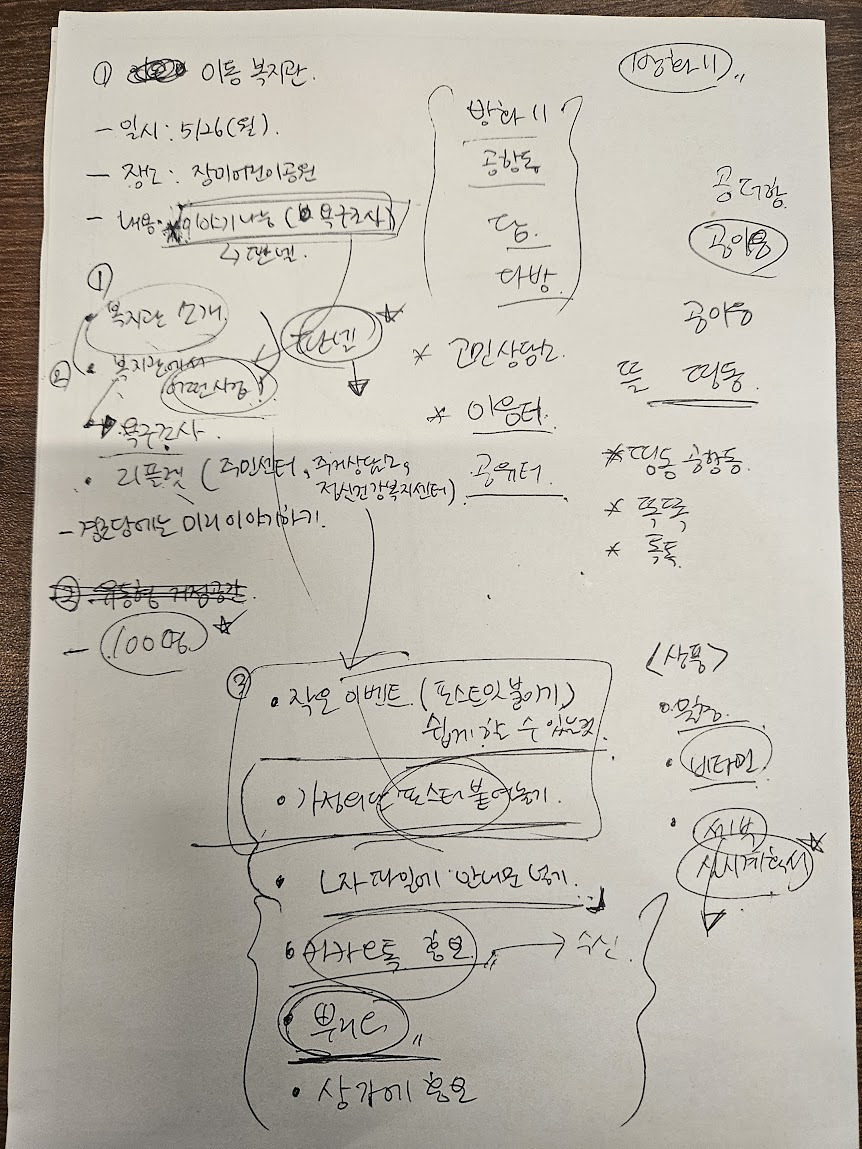 ① 이동 복지관.
- 일시 : 5/26(월).
- 장소 : 장미어린이공원
- 내용. * 이야기나눔 ( 욕구조사)
↳ 판넬.
①
• 복지관 소개.
판넬 ☆
② • 복지관에서
어떤사업
욕구조사.
• 리플렛 (주민센터, 주거상담소,
정신건강복지센터)
- 경로당에는 미리 이야기하기.
② 유동형 거점공간.
- 100명. ☆
방화11
방화11
공항동
담.
다방.
* 고민상담소.
* 이음터.
공유터
공이웅
뜰 띵동.
* 띵동 공항동.
* 똑똑
* 톡톡
③
• 작은 이벤트. (포스트잇 붙이기)
쉽게 할 수 있는것.
• 가정의달 포스터 붙여놓기.
• L자 파일에 안내문 넣기.
• 카카오톡 홍보. → 수신.
• 부채
• 상가에 홍보
<상품>
• 비타민.
•